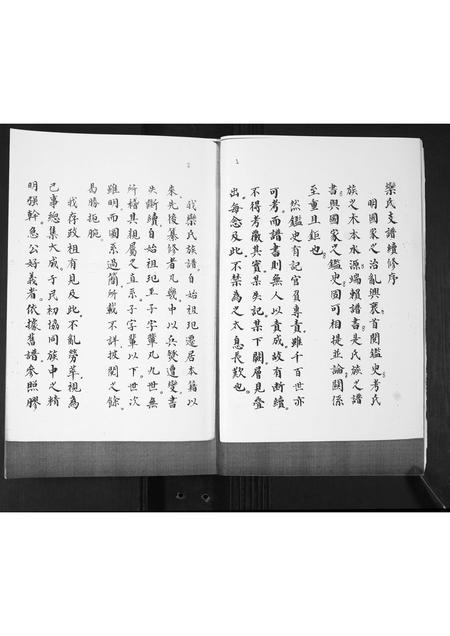 1
欒氏支譜續修序
明國家之治亂興衰首閱鑑史考氏
族之木本水源端賴譜書是氏族之譜
書與國家之鑑史固可相提並論關係
至重且鉅也
然鑑史有記官員專責雖千百世亦
可考而譜書則無人以責成故有斷續
不得考徵其實某失記某下關屑見叠
出每念及此不禁為之太息長歎也
2
我欒氏族譜自始祖玘遷居本籍以
來先後纂修者凡幾中以兵燹遭變書
失斷續自始祖玘至子字輩凡九世無
所稽其親屬之直系子字輩以下世次
雖明而圖系過簡所載不詳披閱之餘
曷勝扼腕
我存政祖有見及此不亂勞萃視為
己事總集大成于民初協同族中之精
明强幹急公好義者依據舊譜參照膠